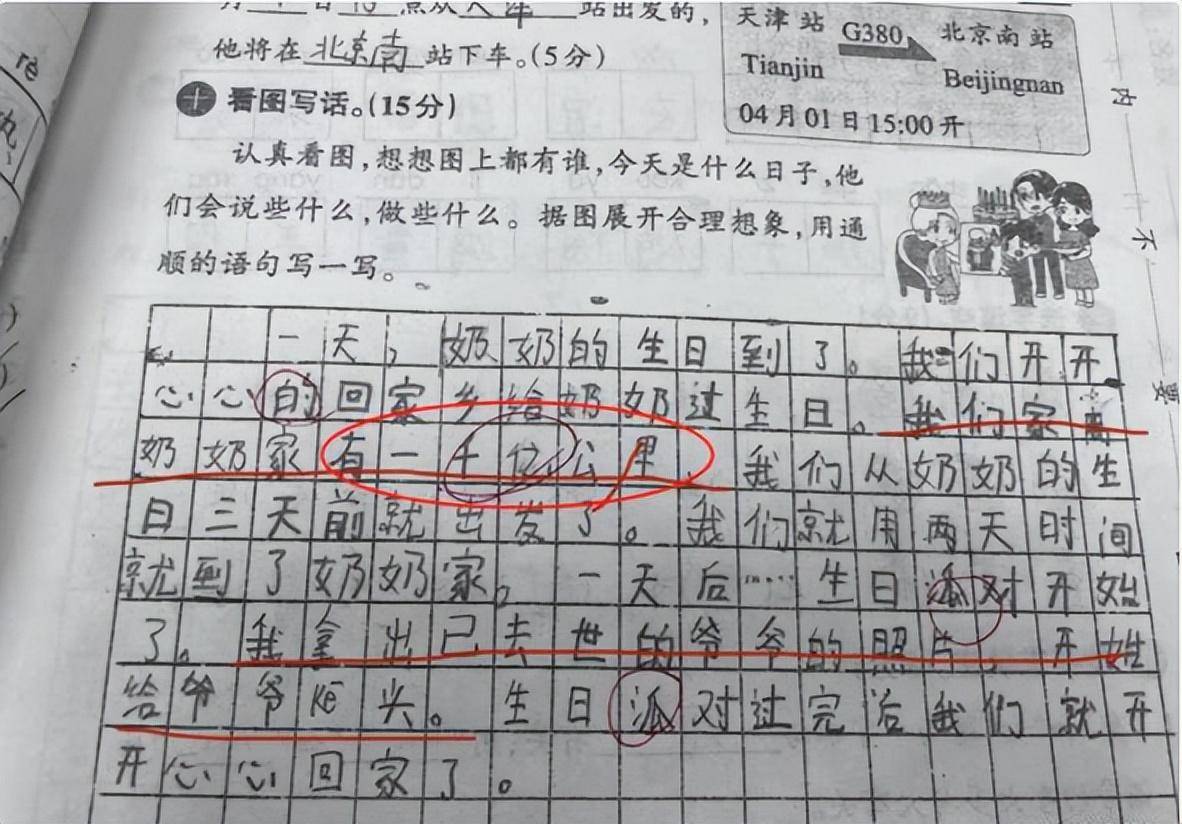 站出发的，
他将在 北京南 站下车。(5分)
天津站 G380 北京南站
Tianjin Beijingnan
04月01日15:00开
十 看图写话。(15分)
认真看图，想想图上都有谁，今天是什么日子，他
们会说些什么，做些什么。据图展开合理想象，用通
顺的语句写一写。
一天，奶奶的生日到了。我们开开
心心的回家乡给奶奶过生日。我们家离
奶奶家有一千位公里，我们从奶奶的生
日三天前就出发了。我们就用两天时间
就到了奶奶家。一天后……生日派对开始
了。我拿出已去世的爷爷的照片，开始
给爷爷kē头。生日派对过完后我们就开
开心心回家了。
rè
内
不
要